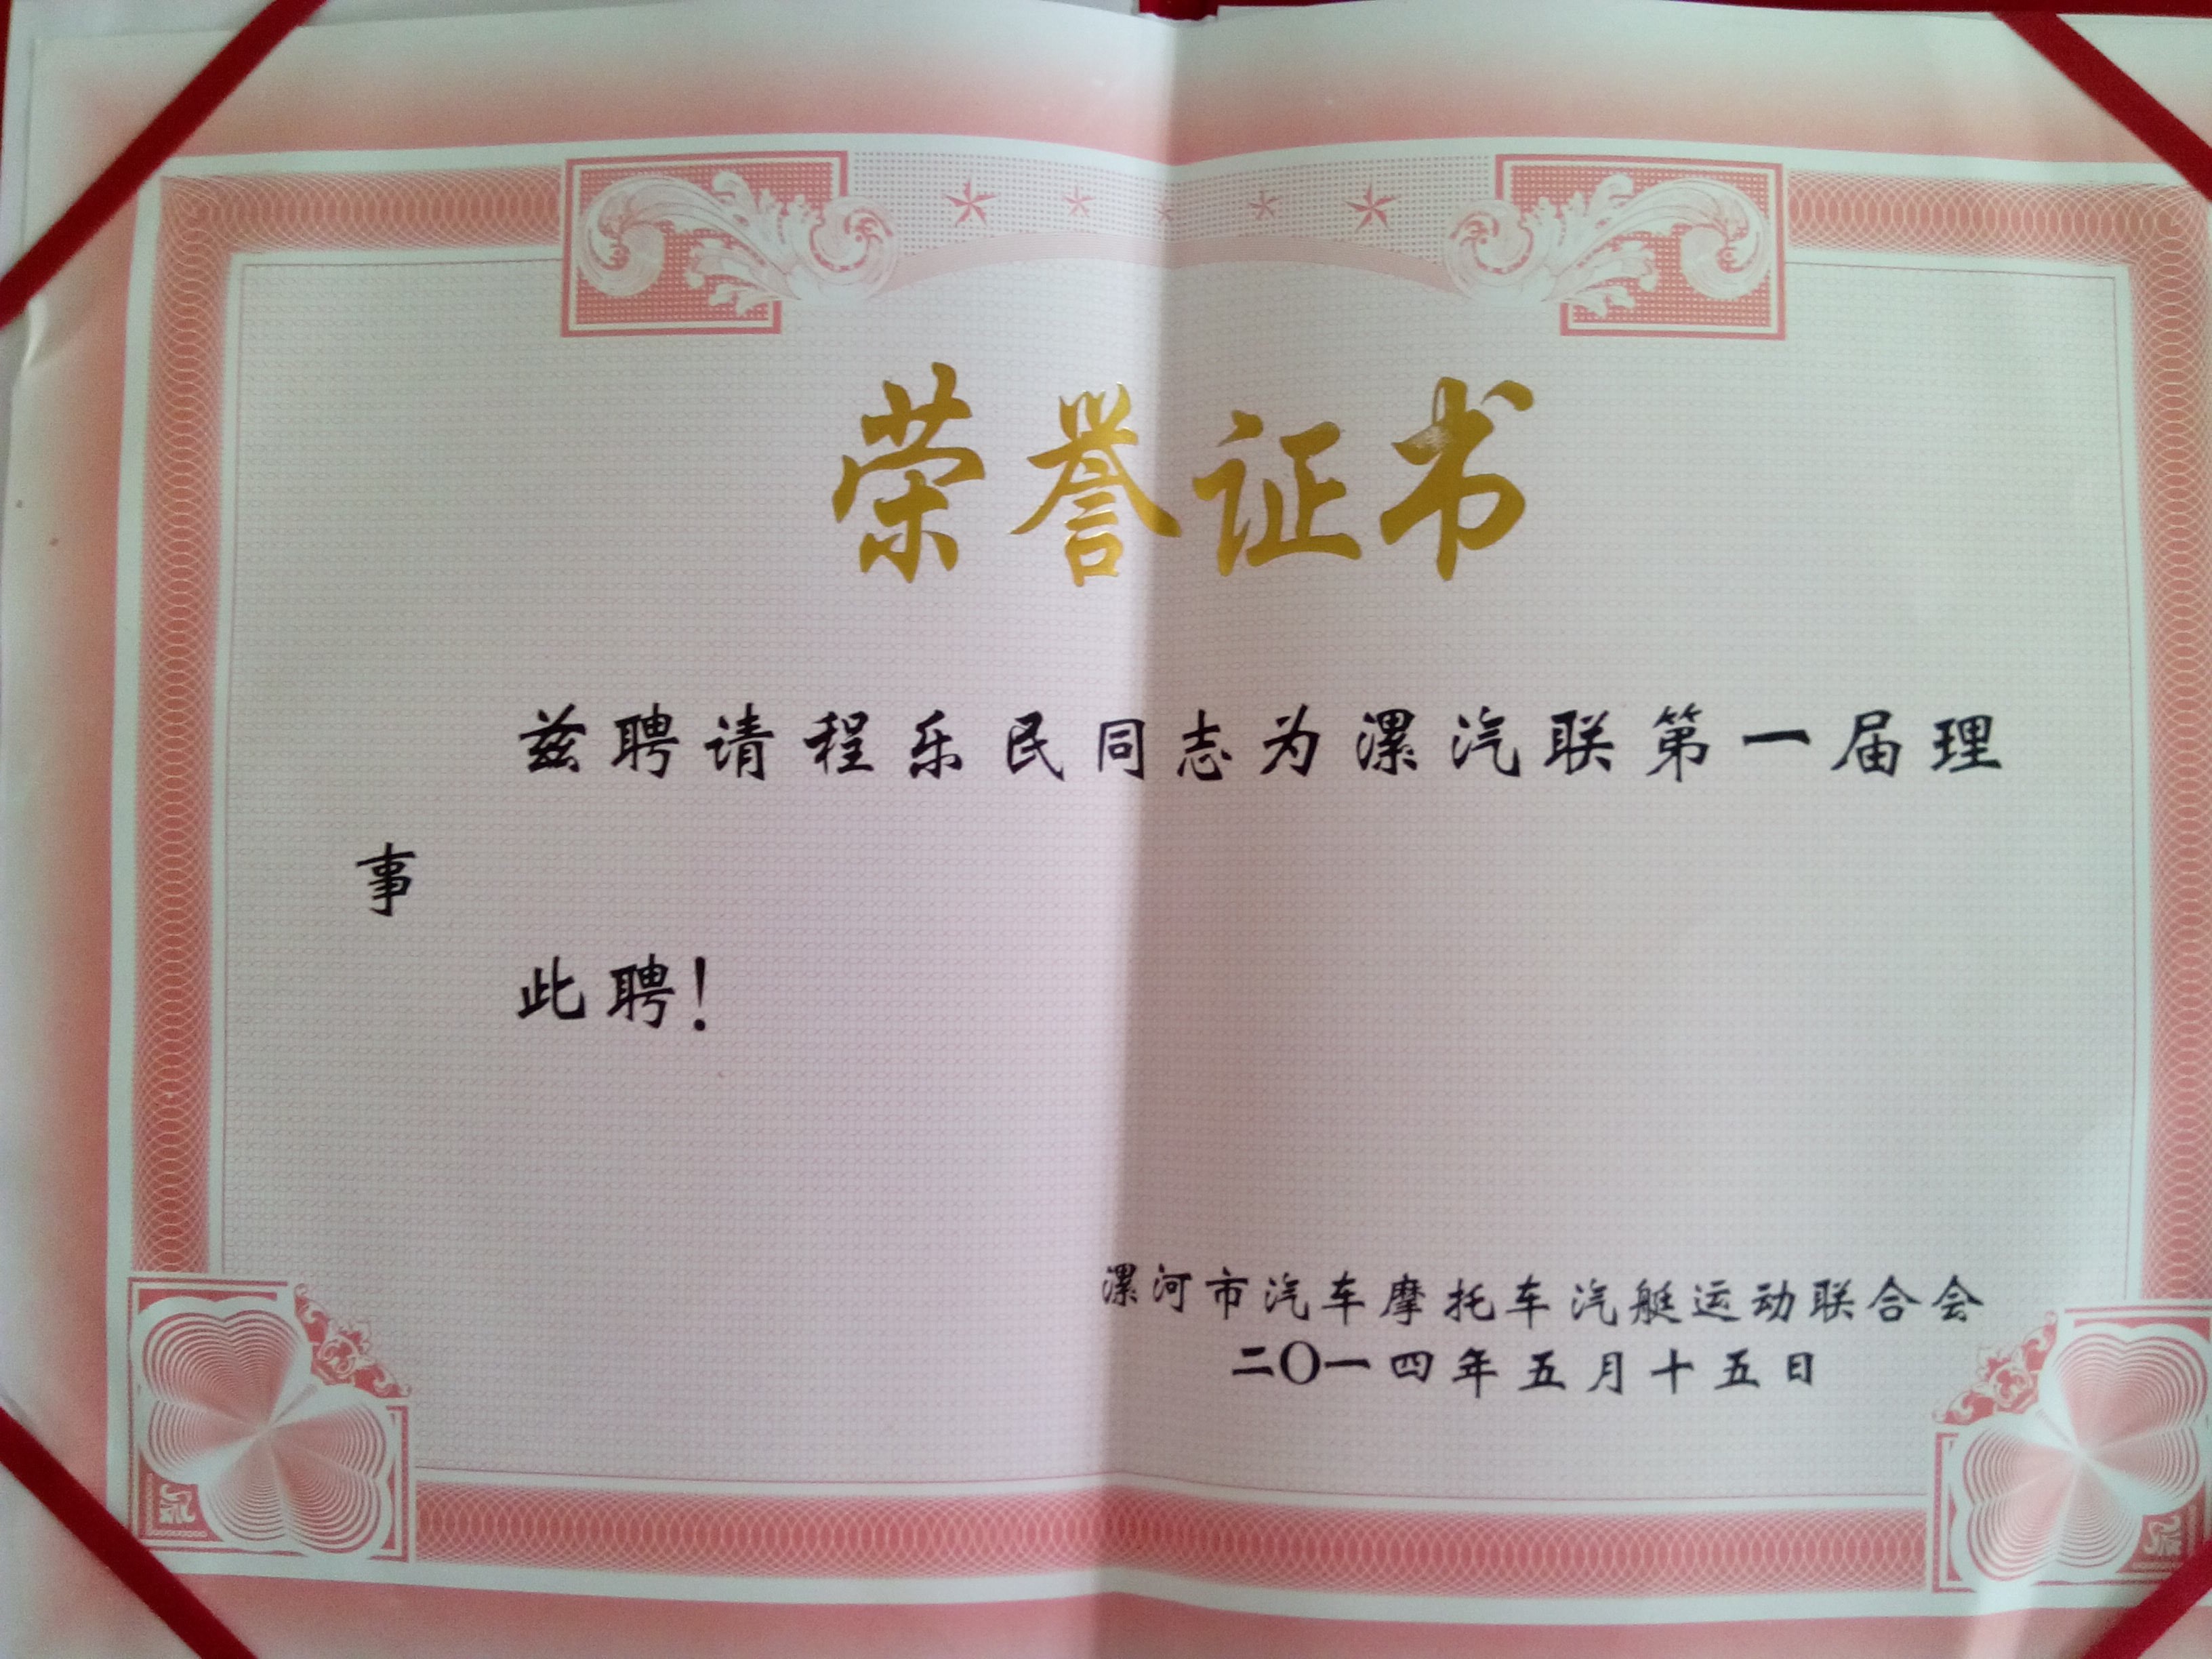 荣誉证书
兹聘请程乐民同志为漯汽联第一届理
事
此聘！
漯河市汽车摩托车汽艇运动联合会
二〇一四年五月十五日